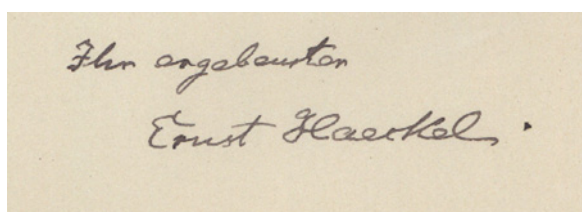 Ihr ergebenster
Ernst Haeckel.